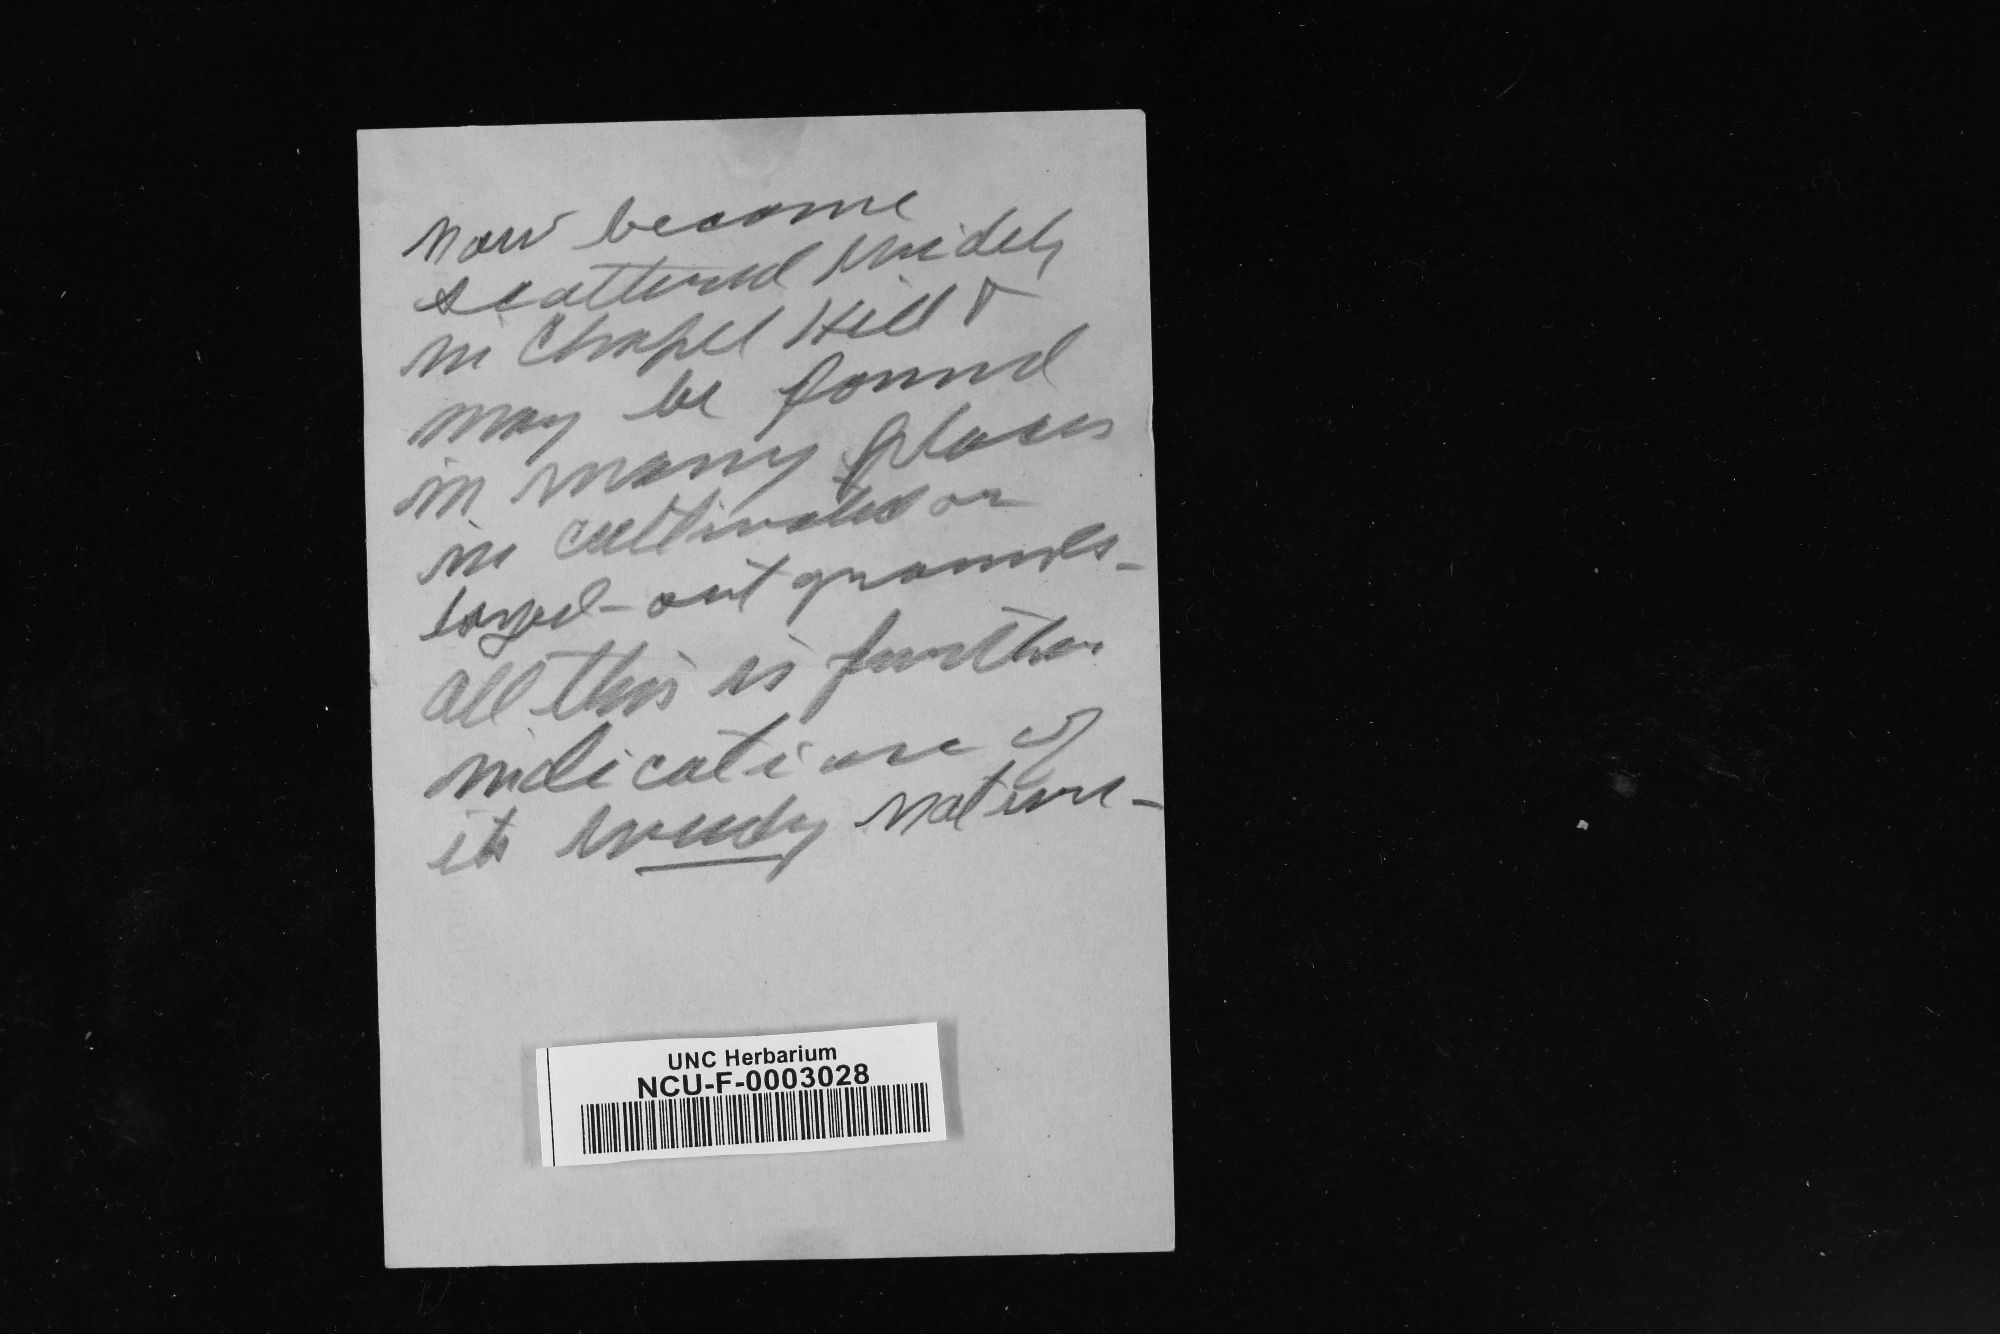 now become
scattered widely
in Chapel Hill &
may be found
in many places
in cultivated or
layed-out grounds-
all this is further
indicative of
its weedy nature-
UNC Herbarium
NCU-F-0003028